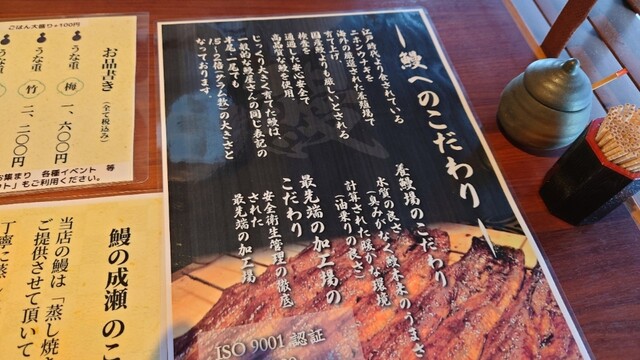 鰻へのこだわり
江戸時代より食されている
ニホンウナギを
海外の厳選された養殖場で
育て上げ、
国産鰻よりも厳しいとされる
検査を
通過した安心安全で
高品質な鰻を使用。
じっくり大きく育てた鰻は、
一般的な鰻屋さんの同じ表記の
半尾・一尾でも
1.5〜2倍(グラム数)の大きさと
なっております。
養鰻場のこだわり
水質の良さ
(臭みがなく鰻本来のうまさ)
計算された暖かな環境
(油乗りの良さ)
最先端の加工場の
こだわり
安全衛生管理の徹底
された
最先端の加工場
ISO 9001 認証
ごはん大盛り+100円
お品書き
(全て税込み)
うな重 梅 一、六〇〇円
うな重 竹 二、二〇〇円
うな重
お集まり 各種イベント 等
もご利用ください。
鰻の成瀬 のこ
当店の鰻は「蒸し焼き
ご提供させて頂いて
丁寧に蒸し